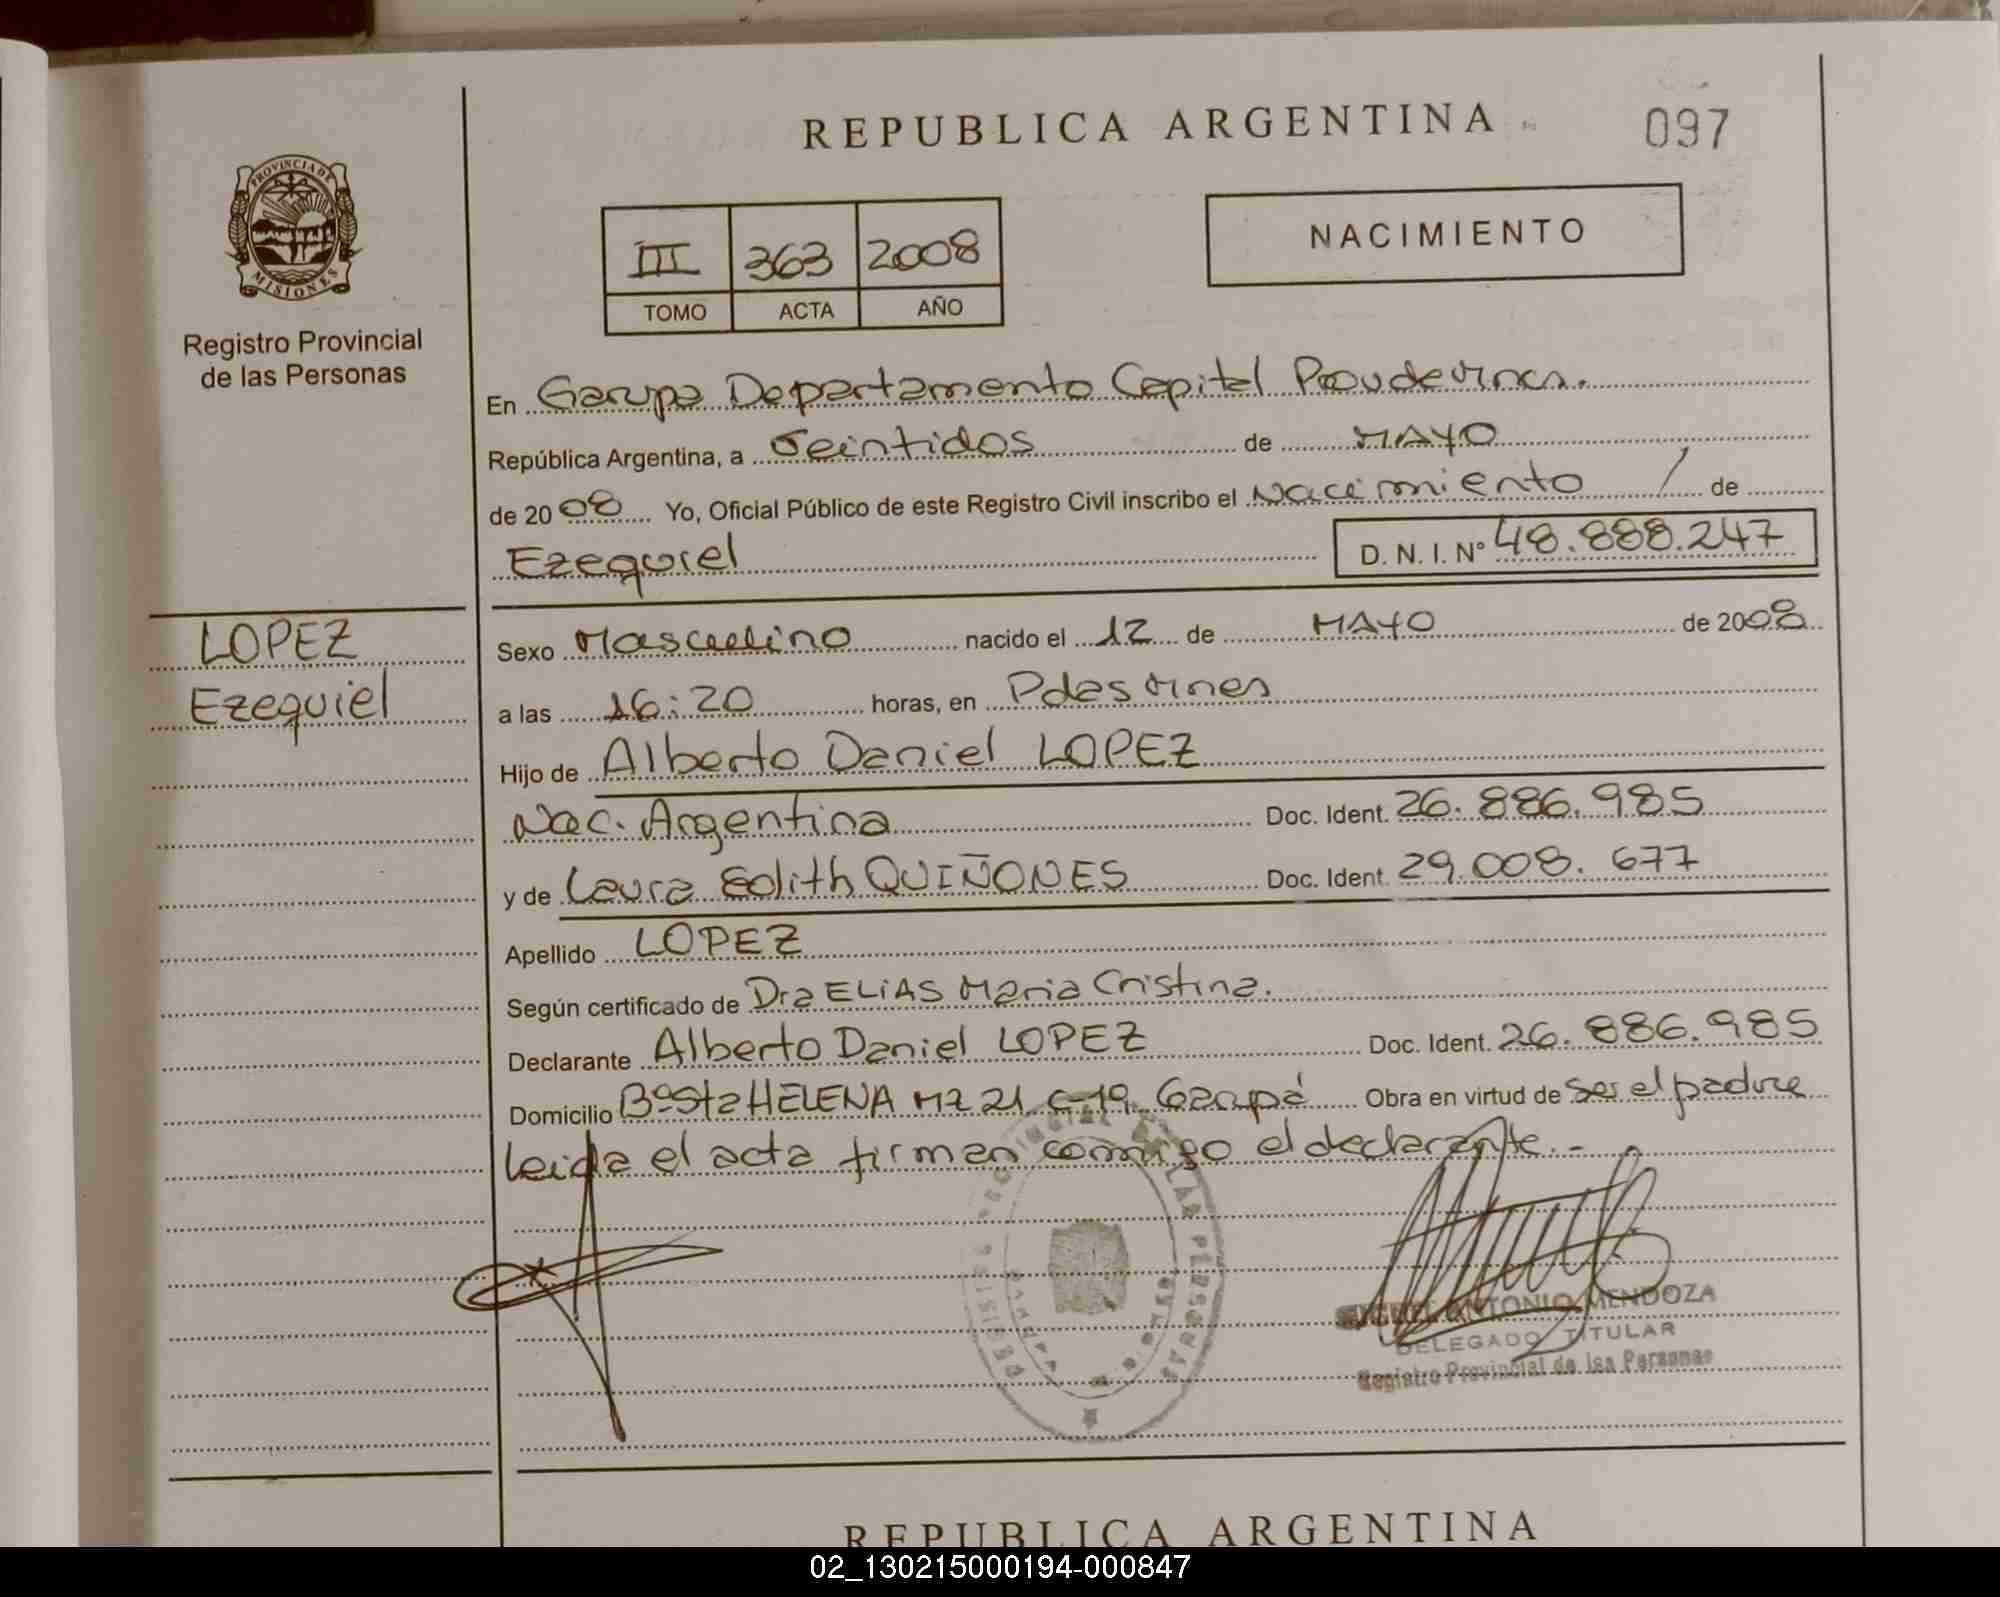 REPUBLICA ARGENTINA
097
PROVINCIA DE
MISIONES
Registro Provincial
de las Personas
III 363 2008
TOMO ACTA AÑO
NACIMIENTO
En Garupa Departamento Capital
República Argentina, a Veintidos de MAYO
de 2008 Yo, Oficial Público de este Registro Civil inscribo el Nacimiento / de
Ezequiel D. N. I. N° 48.888.247
LOPEZ
Ezequiel
Sexo Masculino nacido el 12 de MAYO de 2008
a las 16:20 horas, en Pdas Mnes
Hijo de Alberto Daniel LOPEZ
Nac. Argentina Doc. Ident. 26.886.985
y de Laura Edith QUIÑONES Doc. Ident. 29.008.677
Apellido LOPEZ
Según certificado de Dra ELIAS Maria Cristina.
Declarante Alberto Daniel LOPEZ Doc. Ident. 26.886.985
Domicilio Bº Sta HELENA MZ 21 C-19 Garupá Obra en virtud de ser el padre
leida el acta firman conmigo el declarante.-
ANTONIO MENDOZA
DELEGADO TITULAR
Registro Provincial de las Personas
REPUBLICA ARGENTINA
02_130215000194-000847